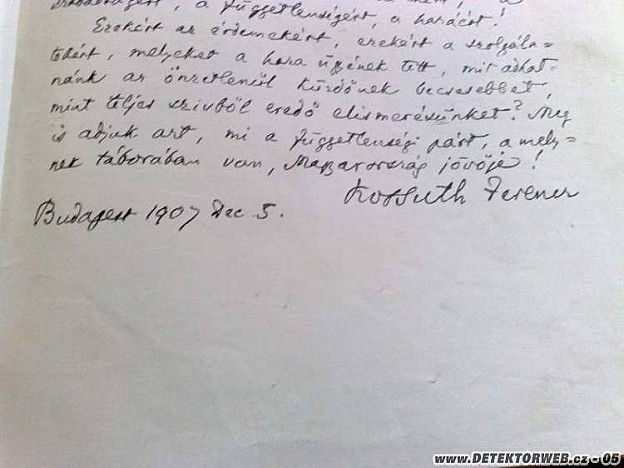 szabadságért, a függetlenségért, a hazáért!
Ezekért az érdemekért, ezekért a szolgála=
tokért, melyeket a haza ügyének tett, mit adhat-
nánk az önzetlenül küzdőnek becsesebbet,
mint teljes szivből eredő elismerésünket? Meg
is adjuk azt, mi a függetlenségi párt, a mely=
nek táborában van, Magyarország jövője!
Kossuth Ferencz
Budapest 1907 Dec 5.
www.DETEKTORWEB.cz
05